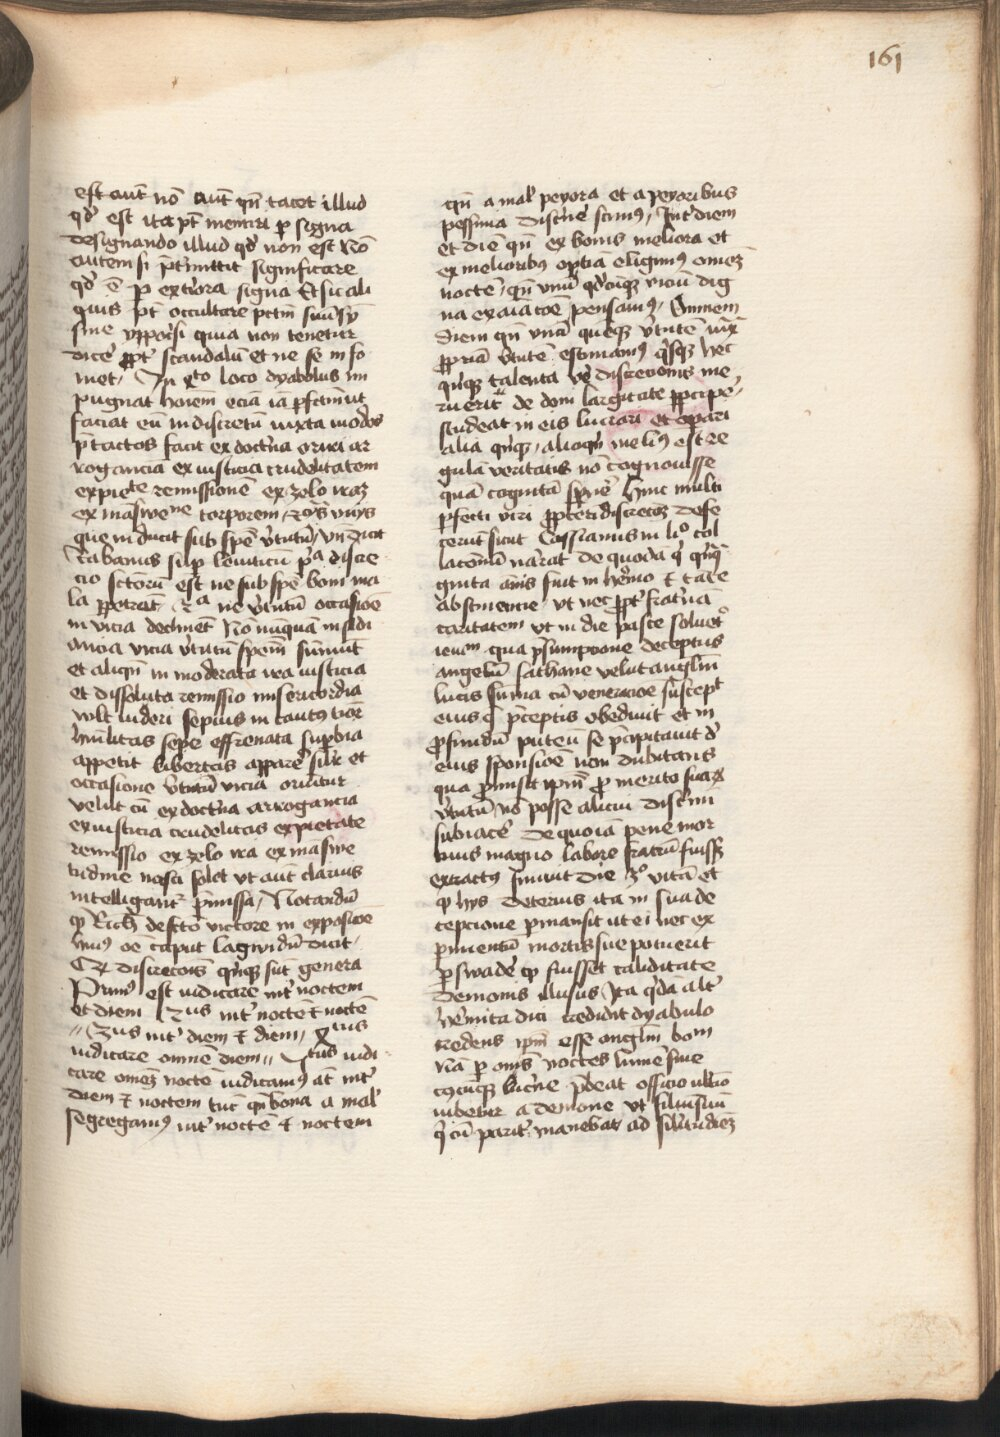 161
est aut̄ nō aut̄ qn̄ tacet illud
qd̓ est ita pt̄ mentiri p signa
designando illud qd̓ non est Nō
autem si p̄tmittit significare
qd̓ ē p ext̓iora signa Et sic ali
quis pt̄ occultare pctm̄ suū sy
sine ypocrisi quia non tenetur
dice᷑ ꝓpt̓ scandalū et ne se infa
met / In xto loco dyabolus im
pugnat hoīem eciā iā ꝑfectū ut
faciat eū indiscretū iuxta modos
p̄tactos facit ex doctīna oriri ar
roganciā ex iusticia crudelitatem
ex pietate remissionē ex zelo iraꝫ
ex māswene torporem
que inducit sub spē v̓tutū / vn̄ dicit
Rabanus sup leuiticū pa discre
cio sctōrū est ne sub spē boni ma
la ꝑpetrēt 2a ne v̓tutū occasiōe
in vicia declinēt Nō nūquā insidi
vicia v̓tutū spēm sumūt
et aliqn̄ inmoderata ira iusticia
et dissoluta remissio misericordia
vult videri sepius incautꝰ tiōr
hūilitas sepe effrenata supbia
appetit libertas apparē silr et
occasione v̓tutū vicia oriūtur
velut cū ex doctīna arrogancia
ex iusticia crudelitas ex pietate
remissio ex zelo ira ex māswe
tudine nasci solet vt aut̄ clarius
intelligant̓ p̄missa / Notandū
ꝙ Rich de scto victore in exposicōe
huiꝰ oē caput lagwidū dicit
Qꝫ discrecōis qn̓qꝫ sūt genera
Primꝰ est iudicare int̓ noctem
et diem 2us int̓ noctē ⁊ noctē
3us int̓ diem ⁊ diem / 4us
iudicare omnē diem Vtus iudi
care omēꝫ noctē iudicamꝰ at̄ int̓
diem ⁊ noctem tūc qn̄ bona a mal̓
segregamꝰ int̓ noctē ⁊ noctem
qn̄ a mal̓ peyora et a peyoribus
pessima disc̓ne᷑ scimꝰ / Int̓ diem
et diē qn̄ ex bonis meliora et
ex melioribꝰ optīa eligimꝰ omēꝫ
noctē / qn̄ vnū qd̓cūqꝫ viciū dig
na exaīacōe pensamꝰ / Omnem
diem qn̄ vnā quēqꝫ v̓tutē iux
ꝓpriā v̓tutē estimamꝰ qisqꝫ hec
qinqꝫ talenta v̓e discrecionis me
ruerit de doni largitate ꝑcipe᷑
studeat in eis lucrari et opari
alia qinqꝫ / alioqn̄ meliꝰ est re
gulā veritatis nō cognouisse
quā cognitā sp̓ne᷑ Hinc multi
ꝑfecti viri ꝓpt̓ indiscrecōꝫ defe
cerūt sicut Cassianus in lio col
lacionū narrat de quodā qi qinqi
ginta ānis fuit in h̓emo ⁊ tāte
abstinencie vt nec ꝓpt̓ frat̓nā
caritatem vt in die pasce solu̓et
ieium qua p̄sumpcione deceptus
angelū sathane velut anglm̄
lucis sūma cū veneracōe suscepit
eius qi p̄ceptis obediuit et in
ꝓfundū puteū se p̄cipitauit d̓
eius sponsiōe non dubitans
qua ꝓmisit ip̄m ꝑ merito suaꝝ
v̓tutū nō posse alicui disc̓mi
subiace᷑ de quo iā pene mor
tuus magno labore fratrū fuissꝫ
extractꝰ finiuit die 3o vitā et
ꝙ hijs deterius ita in sua de
cepcione ꝑmansit ut ei nec ex
ꝑimentū mortis sue potuerit
ꝑswade᷑ ꝙ fuisset caliditate
demonis illusus Ita qidā alt̓
h̓emita diu credidit dyabulo
credens ip̄m esse anglm̄ boni
Nā p omīs noctes lumē sine
cuiꝰcūqꝫ lucerne p̄beat officio ultīo
iubetur a demone vt filiū suū
qi cū parit̓ manebat ad silitudineꝫ